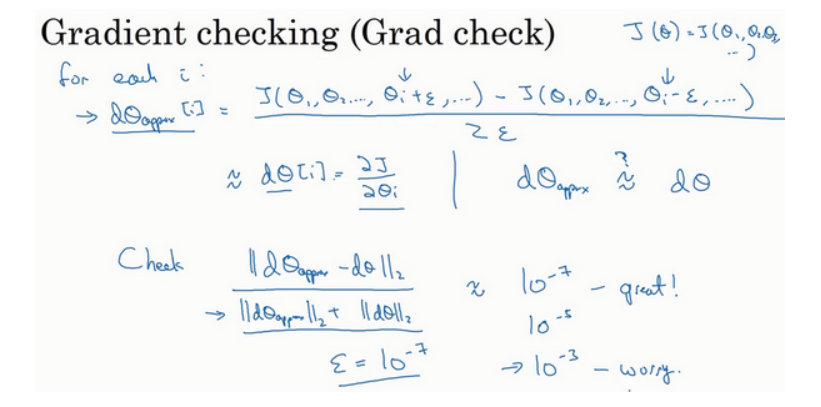 Gradient checking (Grad check)
J(θ) = J(θ₁, θ₂, θ₃
...)
for each i:
→ dθapprox[i] = J(θ₁, θ₂, ..., θᵢ+ε, ...) - J(θ₁, θ₂, ..., θᵢ-ε, ....)
2ε
≈ dθ[i] = ∂J/∂θᵢ | dθapprox ≈? dθ
Check ||dθapprox - dθ||₂
→ ||dθapprox||₂ + ||dθ||₂
≈ 10⁻⁷ - great!
10⁻⁵
ε = 10⁻⁷
→ 10⁻³ - worry.